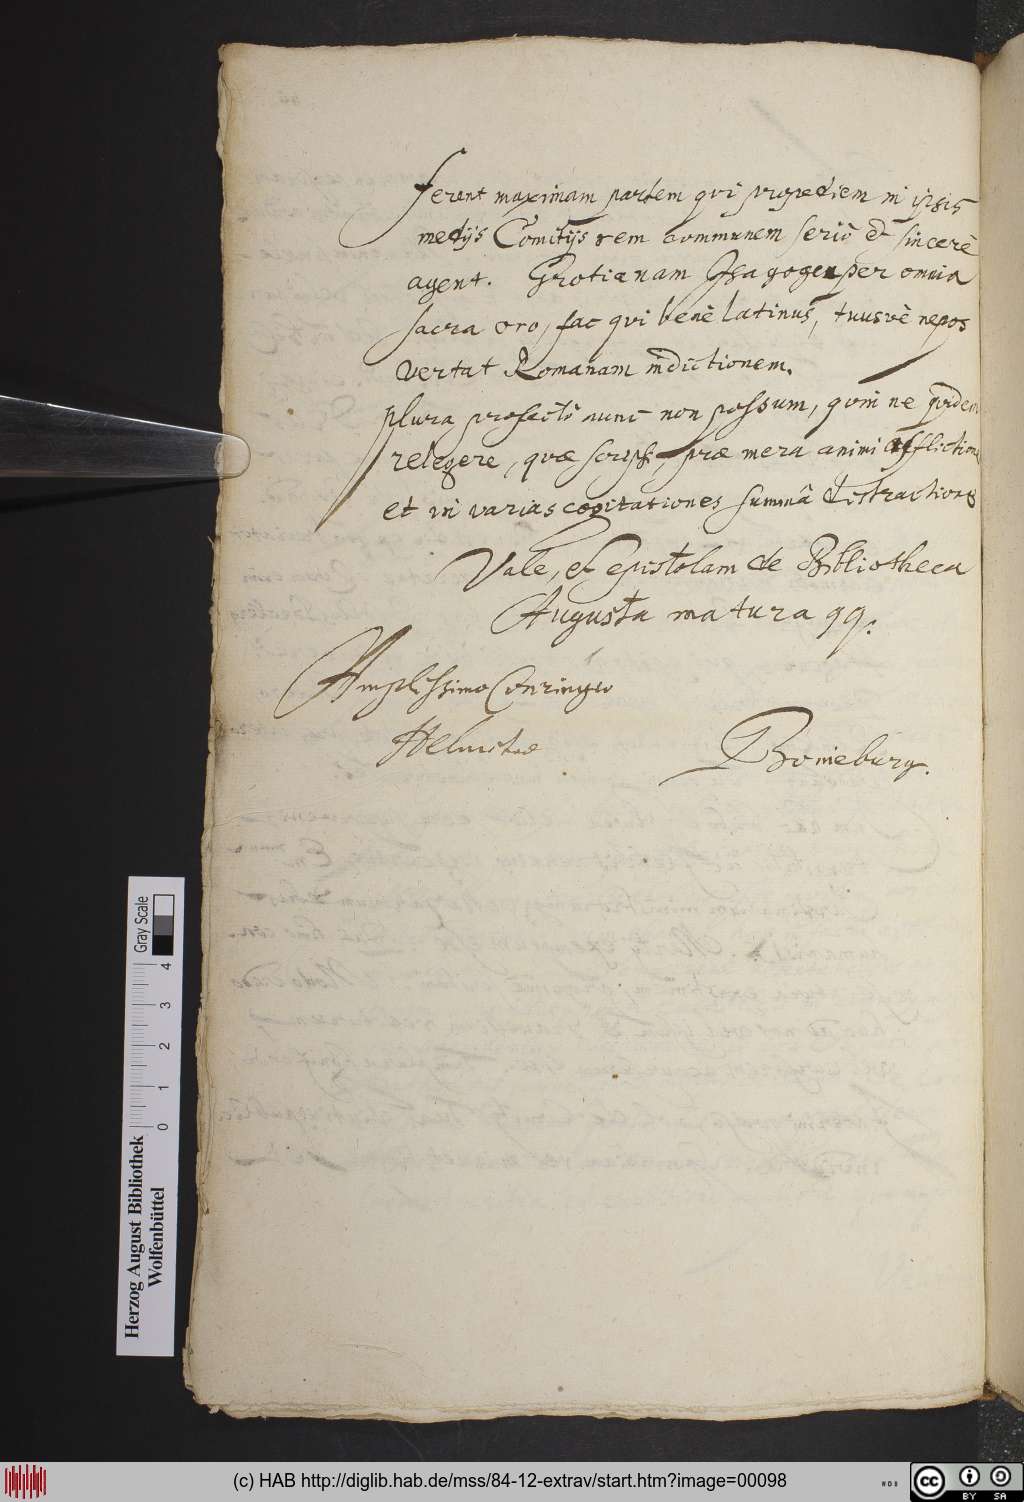 ferent maximam partem qui propediem in ipsis
medijs Comitijs rem communem seriò et sincerè
agent. Grotianam Isagogen per omnia
sacra oro, fac qui benè Latinus, tuusvè nepos
vertat Romanam in dictionem.
plura profectò nunc non possum, quin ne quidem
relegere, quæ scripsi, præ mera animi afflictione
et in varias cogitationes summâ distractione
Vale, et epistolam de Bibliotheca
Augusta matura qq.
Amplissimo Conringio
Helmstad
Boineburg.
Herzog August Bibliothek
Wolfenbüttel
0 1 2 3 4
Gray Scale
(c) HAB http://diglib.hab.de/mss/84-12-extrav/start.htm?image=00098
WDB
cc BY SA